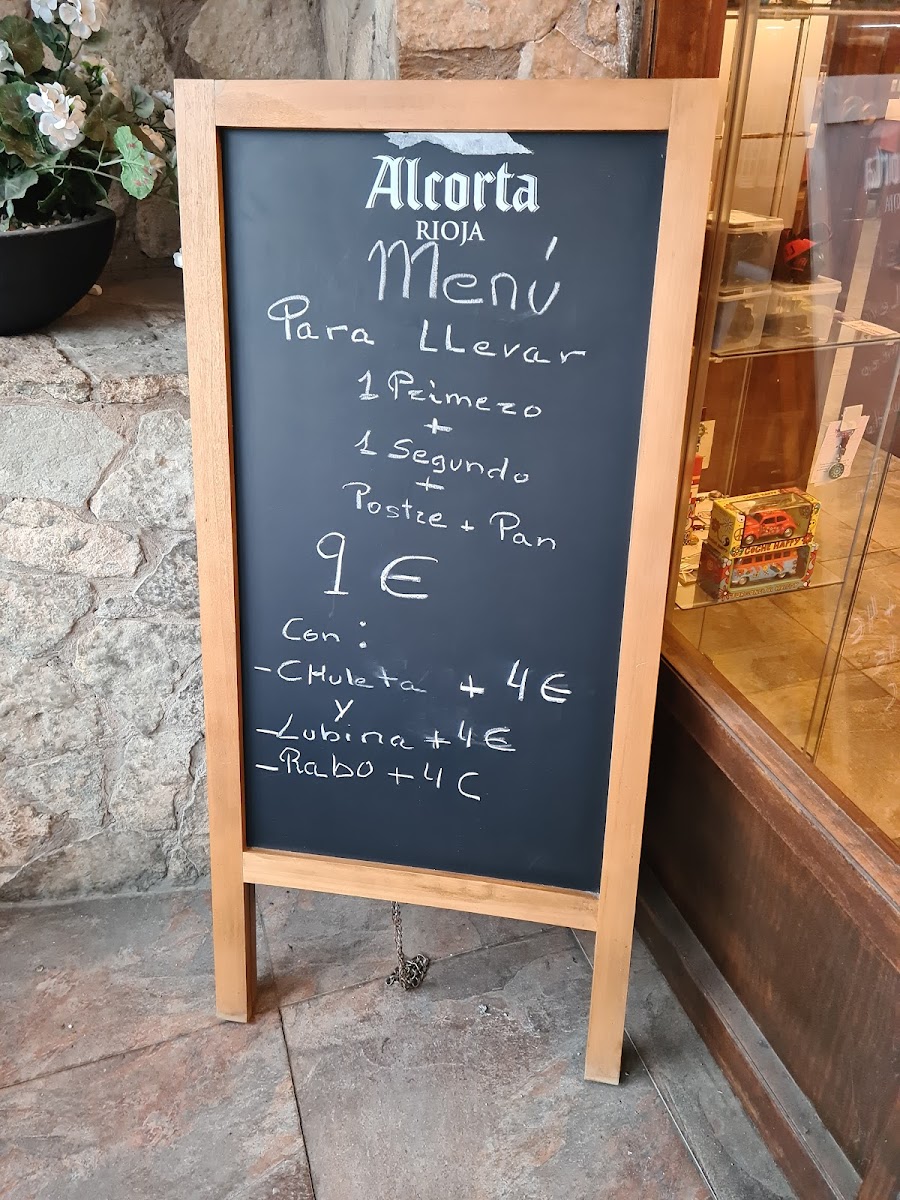 Alcorta
RIOJA
Menú
Para LLevar
1 Primero
+
1 Segundo
+
Postre + Pan
9 €
Con :
- CHuleta + 4 €
y
- Lubina + 4 €
- Rabo + 4 €
COCHE HAPPY